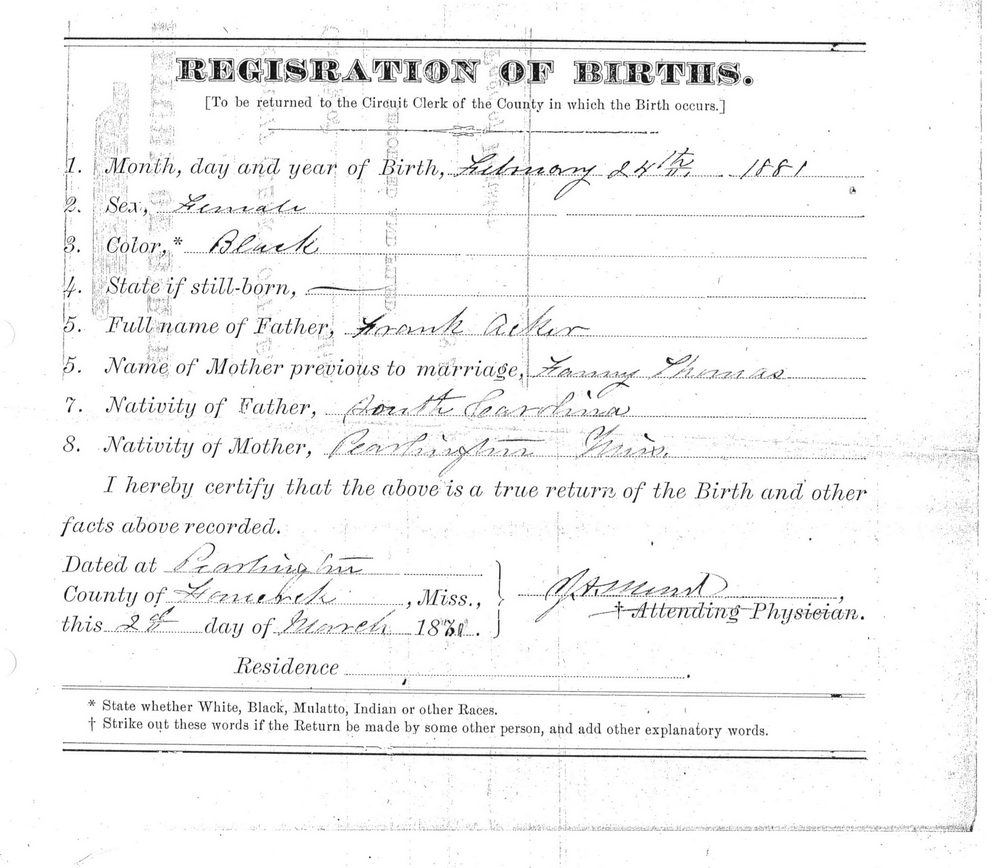 REGISRATION OF BIRTHS.
[To be returned to the Circuit Clerk of the County in which the Birth occurs.]
1. Month, day and year of Birth, February 24th 1881
2. Sex, Female
3. Color,* Black
4. State if still-born,
5. Full name of Father, Frank Acker
5. Name of Mother previous to marriage, Fanny Thomas
7. Nativity of Father, South Carolina
8. Nativity of Mother, Pearlington Miss.
I hereby certify that the above is a true return of the Birth and other
facts above recorded.
Dated at Pearlington
County of Hancock, Miss.,
† Attending Physician.
this 2d day of March 18
Residence
* State whether White, Black, Mulatto, Indian or other Races.
† Strike out these words if the Return be made by some other person, and add other explanatory words.